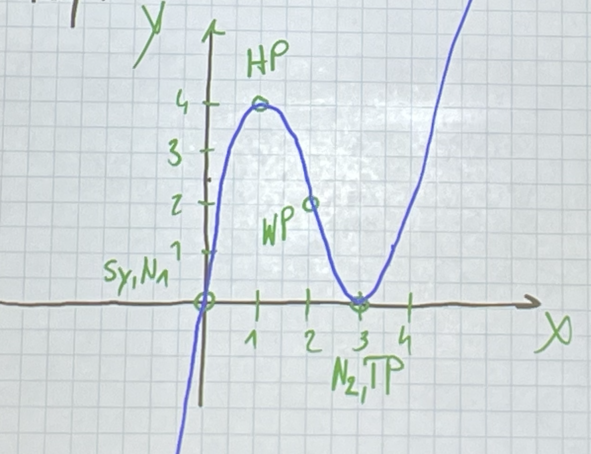 y
HP
4
3
2
WP
1
Sy,N1
1 2 3 4
x
N2,TP